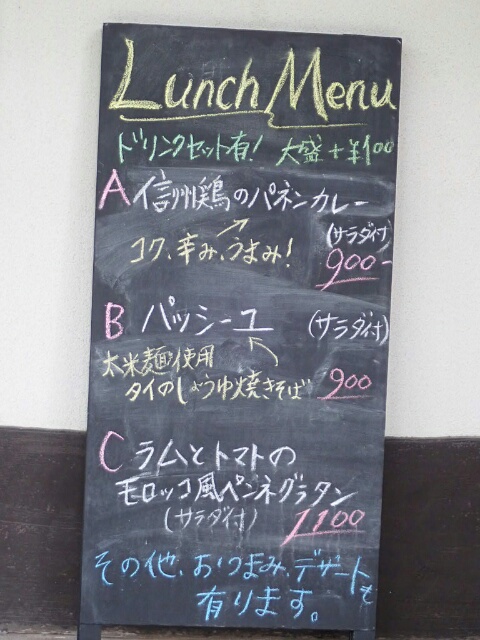 Lunch Menu
ドリンクセット有! 大盛+¥100
A 信州鶏のパネンカレー
(サラダ付)
コク、辛み、うまみ! 900-
B パッシーユ (サラダ付)
太米麺使用
タイのしょうゆ焼きそば 900
C ラムとトマトの
モロッコ風ペンネグラタン
(サラダ付) 1100
その他、おつまみ、デザートも
有ります。